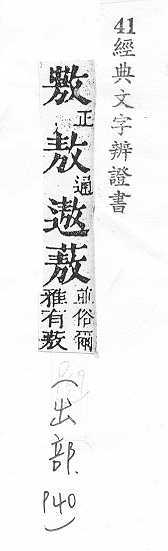 41經典文字辨證書
敷正敖通遨蔜並俗爾雅有蔜
(出部.P40)